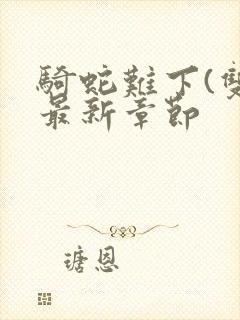 騎蛇難下(雙
最新章節
瑭恩